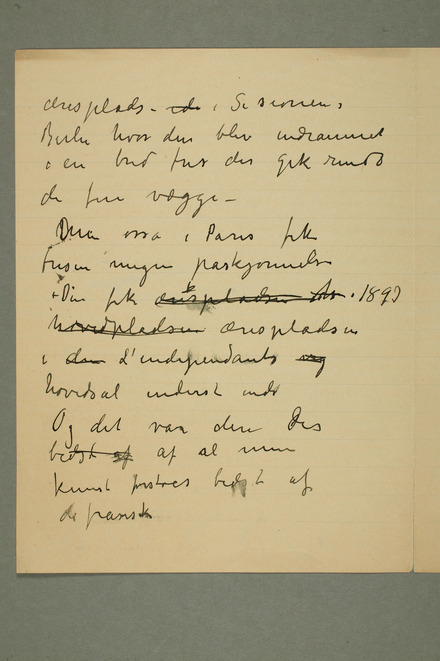 æresplads – i Sesionen,
Berlin hvor den blev indrammet
i en bred frise der gik rundt
de fire vægge –
Men også i Paris fik
frisen megen påskjønnelse
– Den fik ærespladsen 1897
hovedpladsen ærespladsen
i den d'independants og
hovedsal inderst inde
Og det var den Des
bedst af af al min
kunst forstodes bedst af
de fransk